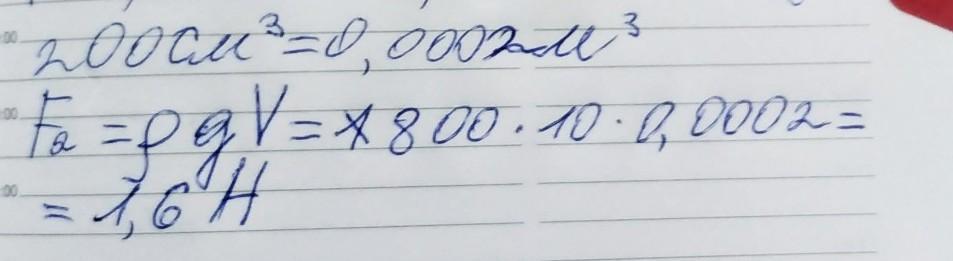 200см³=0,0002м³
Fа=ρgV=800·10·0,0002=
=1,6Н